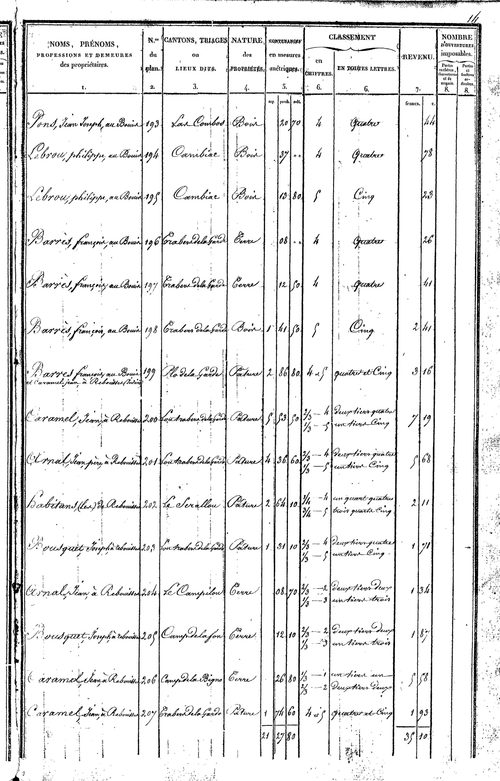 14
NOMS, PRÉNOMS, PROFESSIONS ET DEMEURES des propriétaires. | N.os du plan. | CANTONS, TRIAGES ou LIEUX DITS. | NATURE des PROPRIÉTÉS. | CONTENANCES en mesures métriques. | CLASSEMENT en CHIFFRES. | en TOUTES LETTRES. | REVENU. | NOMBRE D'OUVERTURES imposables.
1. | 2. | 3. | 4. | 5. | 6. | 6. | 7. | 8. | 8.
francs. c.
Pons, Jean Joseph, au Bouis | 193 | Las Combos | Bois | 20 70 | 4 | Quatre | 44
Lebrou, philippe, au Bouis | 194 | Cambiac | Bois | 37 .. | 4 | Quatre | 78
Lebrou, philippe, au Bouis | 195 | Cambiac | Bois | 13 80 | 5 | Cinq | 23
Barrès, françois, au Bouis | 196 | Trabers de la Garde | Terre | 08 .. | 4 | Quatre | 26
Barrès, françois, au Bouis | 197 | Trabers de la Garde | Terre | 12 50 | 4 | Quatre | 41
Barrès, françois, au Bouis | 198 | Trabers de la Garde | Bois | 1 41 50 | 5 | Cinq | 2 41
Barrès françois, au Bouis
et Caramel, jean, à Rebouisse | 199 | Pla de la Garde | Pâture | 2 86 80 | 4 et 5 | quatre et Cinq | 3 16
Caramel, Jean, à Rebouisse | 200 | Lou trabers de la Garde | Pâture | 5 53 50 | 2/3 — 4 | deux tiers quatre | 7 19
1/3 — 5 | un tiers Cinq
Arnal, Jean, père, à Rebouisse | 201 | Lou trabers de la Garde | Pâture | 4 36 60 | 2/3 — 4 | deux tiers quatre | 5 68
1/3 — 5 | un tiers Cinq
Habitans (Les) de Rebouisse | 202 | Le Serallou | Pâture | 2 64 10 | 1/4 — 4 | un quart quatre | 2 11
3/4 — 5 | trois quarts Cinq
Bousquet, Joseph à rebouisse | 203 | Lou trabers de la Garde | Pâture | 1 31 10 | 2/3 — 4 | deux tiers quatre | 1 71
1/3 — 5 | un tiers Cinq
Arnal, Jean, à Rebouisse | 204 | Le Campilou | Terre | 08 70 | 2/3 — 2 | deux tiers deux | 1 34
1/3 — 3 | un tiers trois
Bousquet Joseph à rebouisse | 205 | Camp de la fon | Terre | 12 10 | 2/3 — 2 | deux tiers deux | 1 87
1/3 — 3 | un tiers trois
Caramel, Jean, à Rebouisse | 206 | Camp de la Bigno | Terre | 26 80 | 1/3 — 1 | un tiers un | 5 58
2/3 — 2 | deux tiers deux
Caramel, Jean, à Rebouisse | 207 | Trabers de la Garde | Pâture | 1 74 60 | 4 et 5 | quatre et Cinq | 1 93
21 27 80 | 35 10